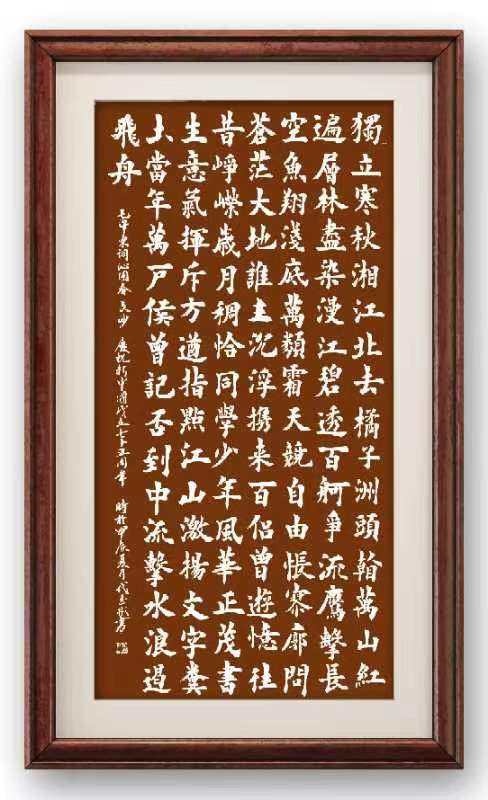 獨立寒秋湘江北去橘子洲頭翰萬山紅
遍層林盡染漫江碧透百舸爭流鷹擊長
空魚翔淺底萬類霜天競自由悵寥廓問
蒼茫大地誰主沉浮携来百侣曾遊憶往
昔崢嶸歲月稠恰同學少年風華正茂書
生意氣揮斥方遒指點江山激揚文字糞
土當年萬户侯曾記否到中流擊水浪遏
飛舟
毛泽東詞沁園春長沙 慶祝新中國成立七十五周年 時於甲辰夏月